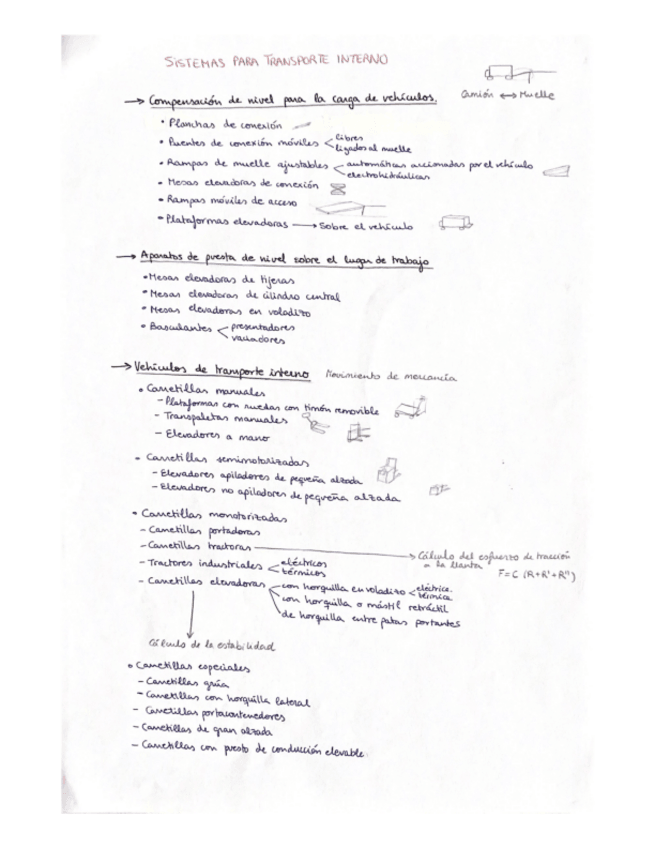 SISTEMAS PARA TRANSPORTE INTERNO
→ Compensación de nivel para la carga de vehículos.
Camión ↔ Muelle
• Planchas de conexión
• Puentes de conexión móviles < libres
ligados al muelle
• Rampas de muelle ajustables < automáticas accionadas por el vehículo
electrohidráulicas
• Mesas elevadoras de conexión
• Rampas móviles de acceso
• Plataformas elevadoras → Sobre el vehículo
→ Aparatos de puesta de nivel sobre el lugar de trabajo
• Mesas elevadoras de tijeras
• Mesas elevadoras de cilindro central
• Mesas elevadoras en voladizo
• Basculantes < presentadores
variadores
→ Vehículos de transporte interno Movimiento de mercancía
• Carretillas manuales
- Plataformas con ruedas con timón removible
- Transpaletas manuales
- Elevadores a mano
• Carretillas semimotorizadas
- Elevadores apiladores de pequeña alzada
- Elevadores no apiladores de pequeña alzada
• Carretillas motorizadas
- Carretillas portadoras
- Carretillas tractoras → Cálculo del esfuerzo de tracción
a la llanta
F = C (R+R'+R'')
- Tractores industriales < eléctricos
térmicos
- Carretillas elevadoras con horquilla en voladizo < eléctrica
térmica
con horquilla o mástil retráctil
de horquilla entre patas portantes
Cálculo de la estabilidad
• Carretillas especiales
- Carretillas grúa
- Carretillas con horquilla lateral
- Carretillas portacontenedores
- Carretillas de gran alzada
- Carretillas con puesto de conducción elevable.